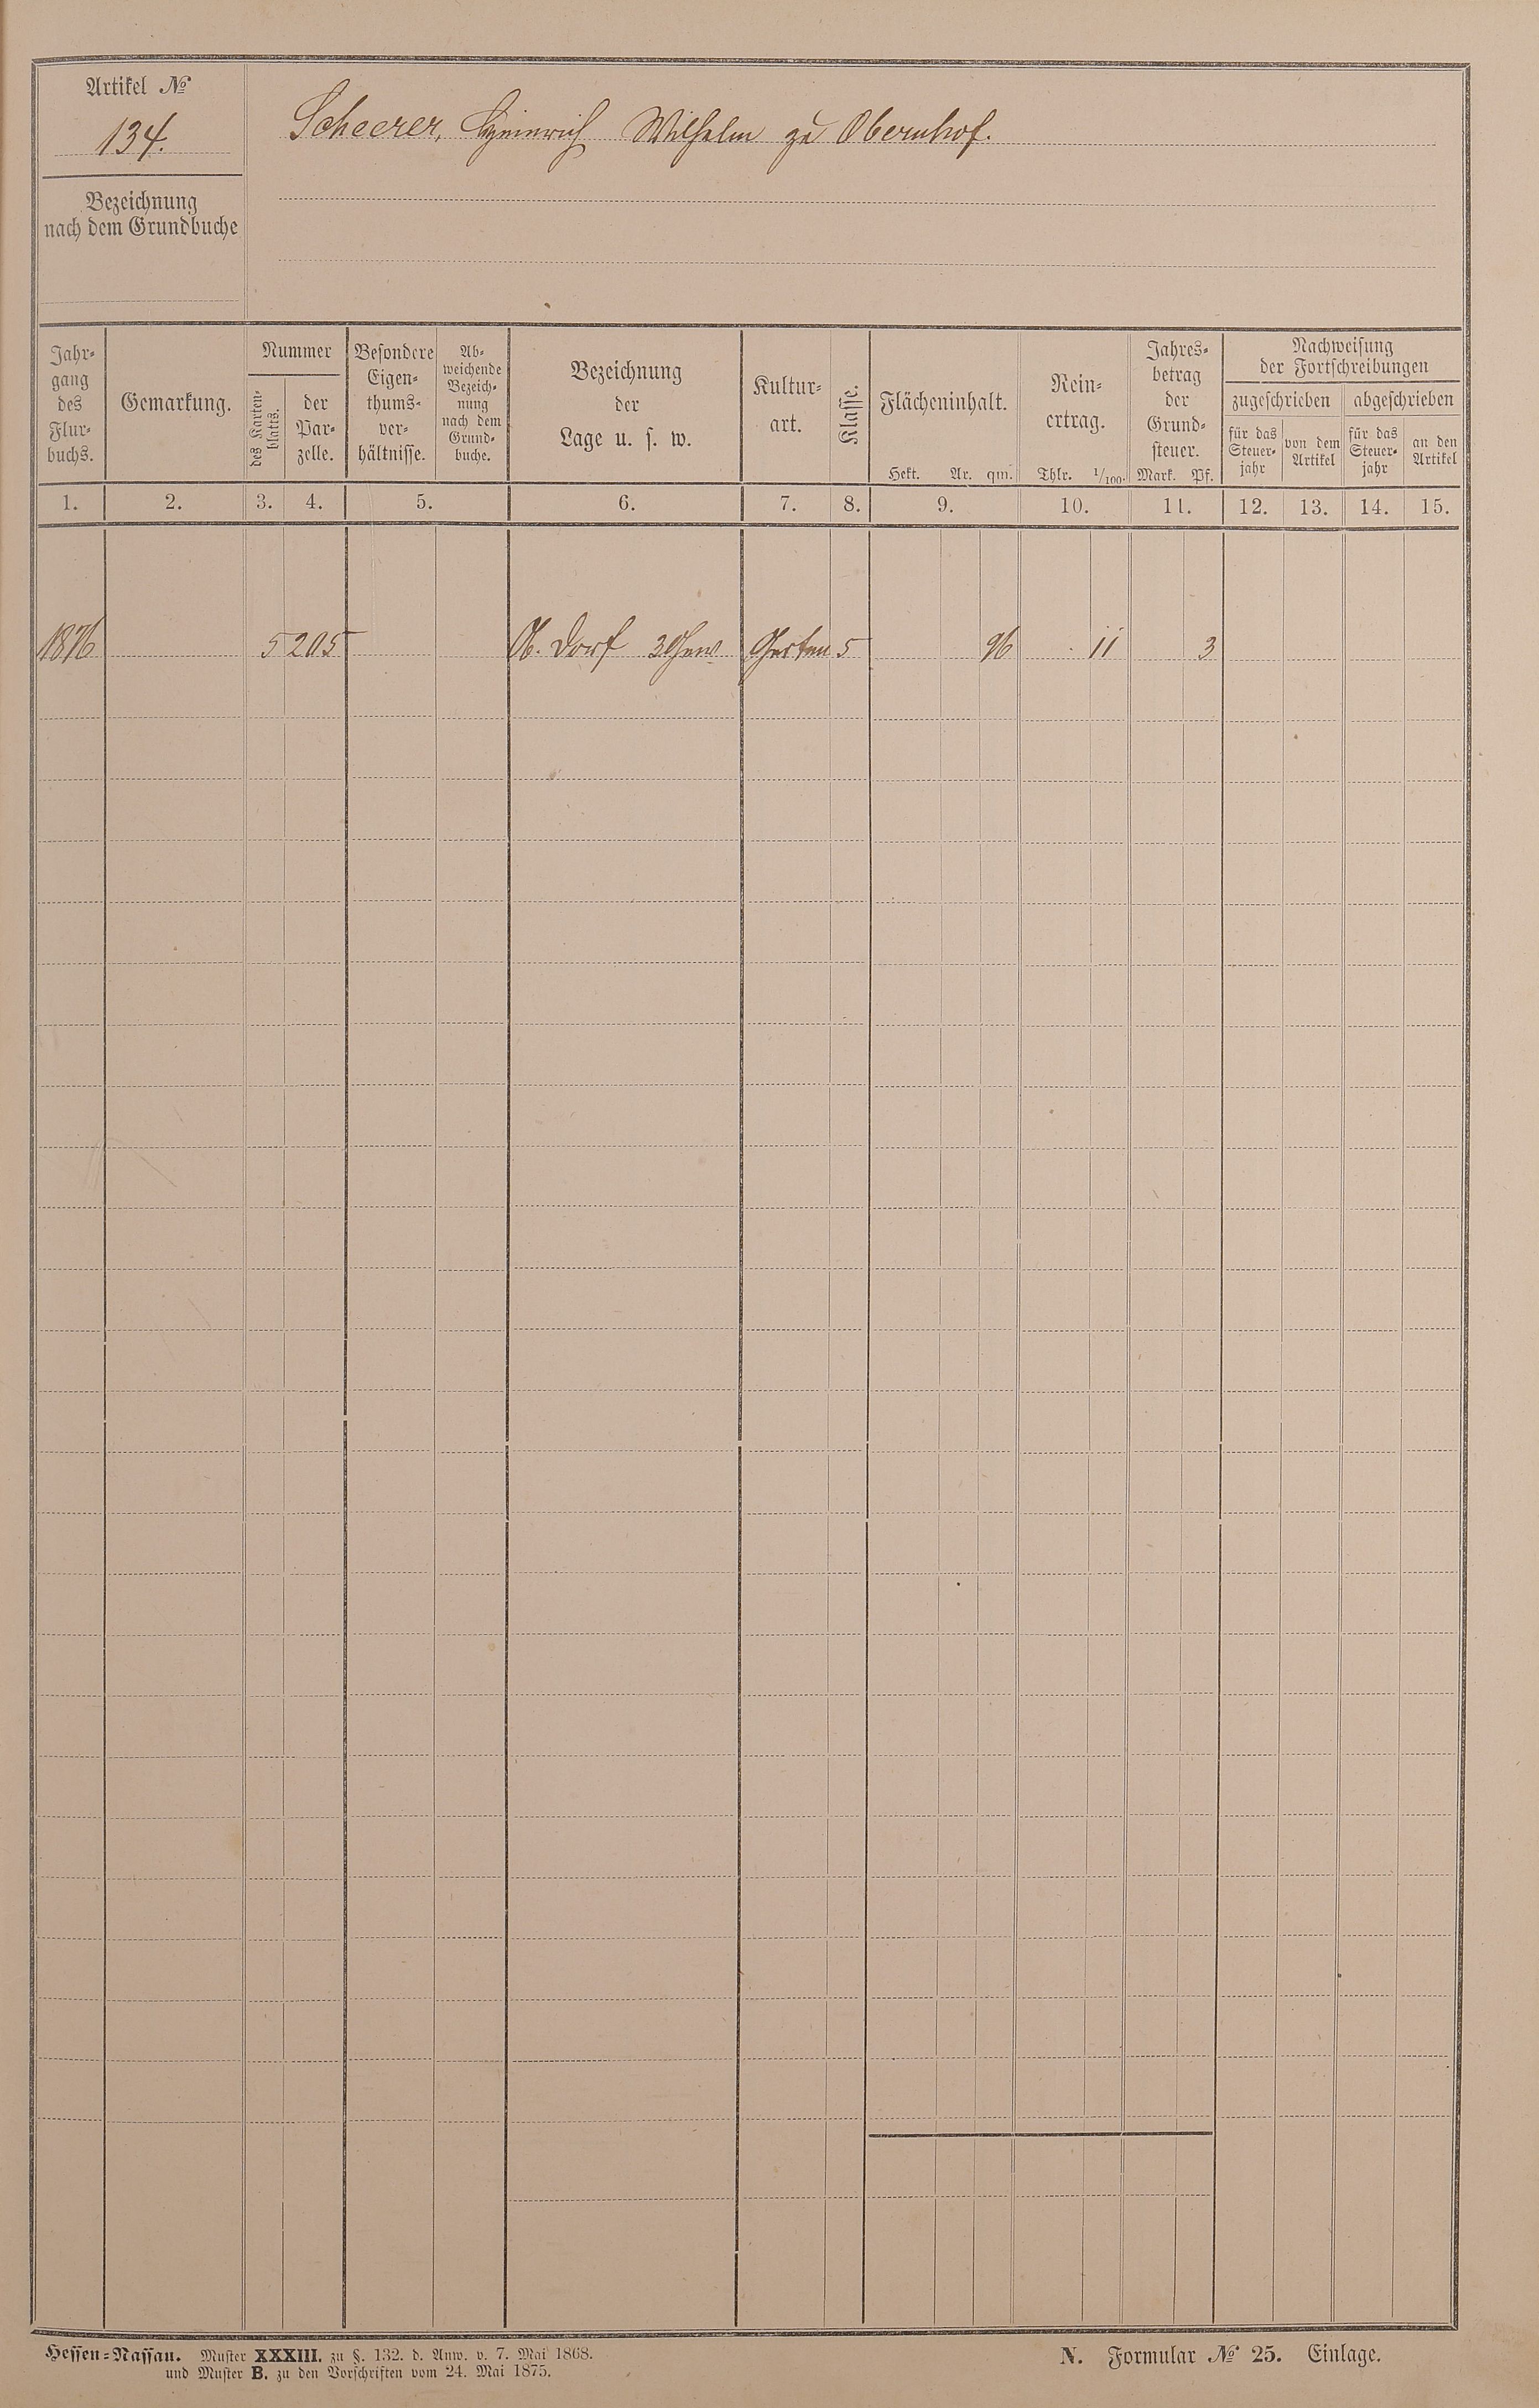 Artikel №
134.
Scheerer, Heinrich Wilhelm zu Obernhof.
Bezeichnung
nach dem Grundbuche
Jahr-
gang
des
Flur-
buchs.
Gemarkung.
Nummer
des Karten-
blatts.
der
Par-
zelle.
Besondere
Eigen-
thums-
ver-
hältnisse.
Ab-
weichende
Bezeich-
nung
nach dem
Grund-
buche.
Bezeichnung
der
Lage u. s. w.
Kultur-
art.
Klasse.
Flächeninhalt.
Hekt. Ar. qm.
Rein-
ertrag.
Thlr. 1/100.
Jahres-
betrag
der
Grund-
steuer.
Mark. Pf.
Nachweisung
der Fortschreibungen
zugeschrieben abgeschrieben
für das
Steuer-
jahr
von dem
Artikel
für das
Steuer-
jahr
an den
Artikel
1. 2. 3. 4. 5. 6. 7. 8. 9. 10. 11. 12. 13. 14. 15.
1876 5 205 Ob. Dorf 3 Gew. Garten 5 96 11 3
Hessen-Nassau. Muster XXXIII. zu §. 132. d. Anw. v. 7. Mai 1868.
und Muster B. zu den Vorschriften vom 24. Mai 1875.
N. Formular № 25. Einlage.